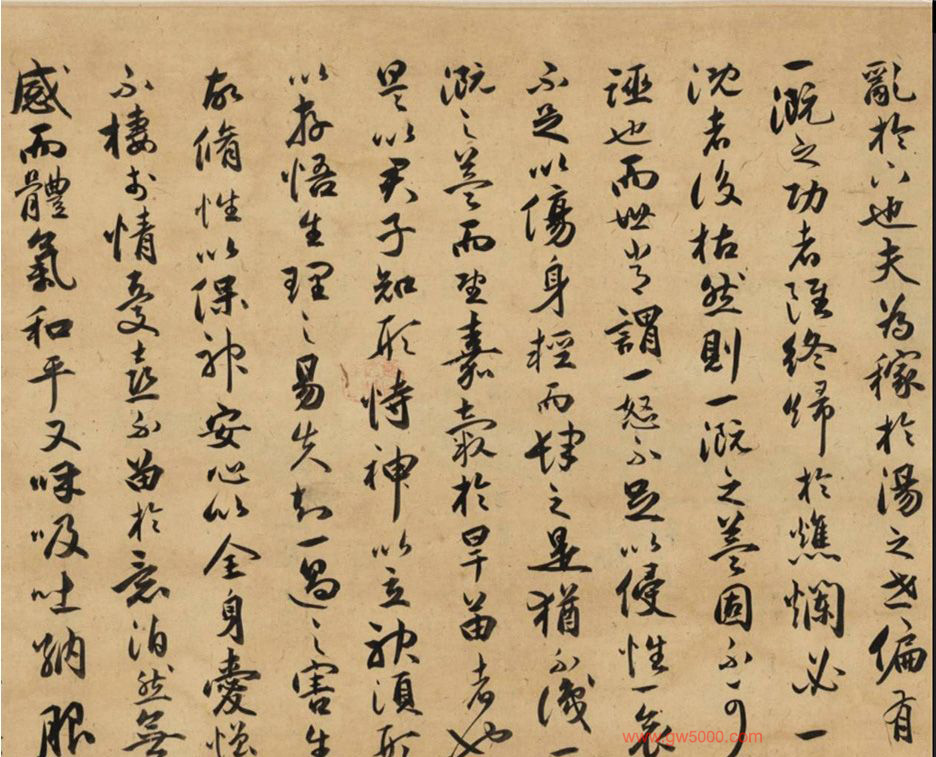 亂於下也夫為稼於湯之世偏有
一溉之功者雖終歸於燋爛必一
溉者後枯然則一溉之益固不可
誣也而世常謂一怒不足以侵性一哀
不足以傷身輕而肆之是猶不識一
溉之益而望嘉穀於旱苗者也
是以君子知形恃神以立神須形
以存悟生理之易失知一過之害生
故脩性以保神安心以全身愛憎
不棲於情憂喜不留於意泊然無
感而體氣和平又呼吸吐納服
www.gw5000.com